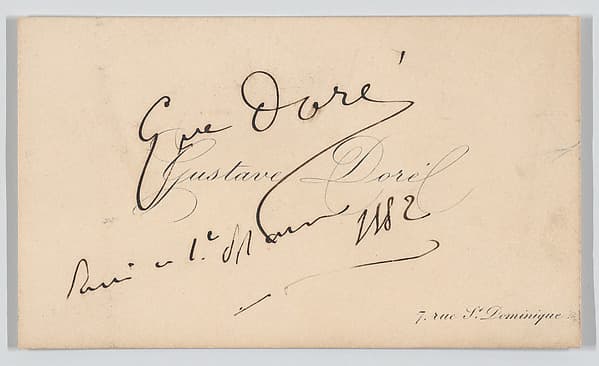 Gve Doré
Gustave Doré
Paris ce 1.e 1882
7, rue St. Dominique